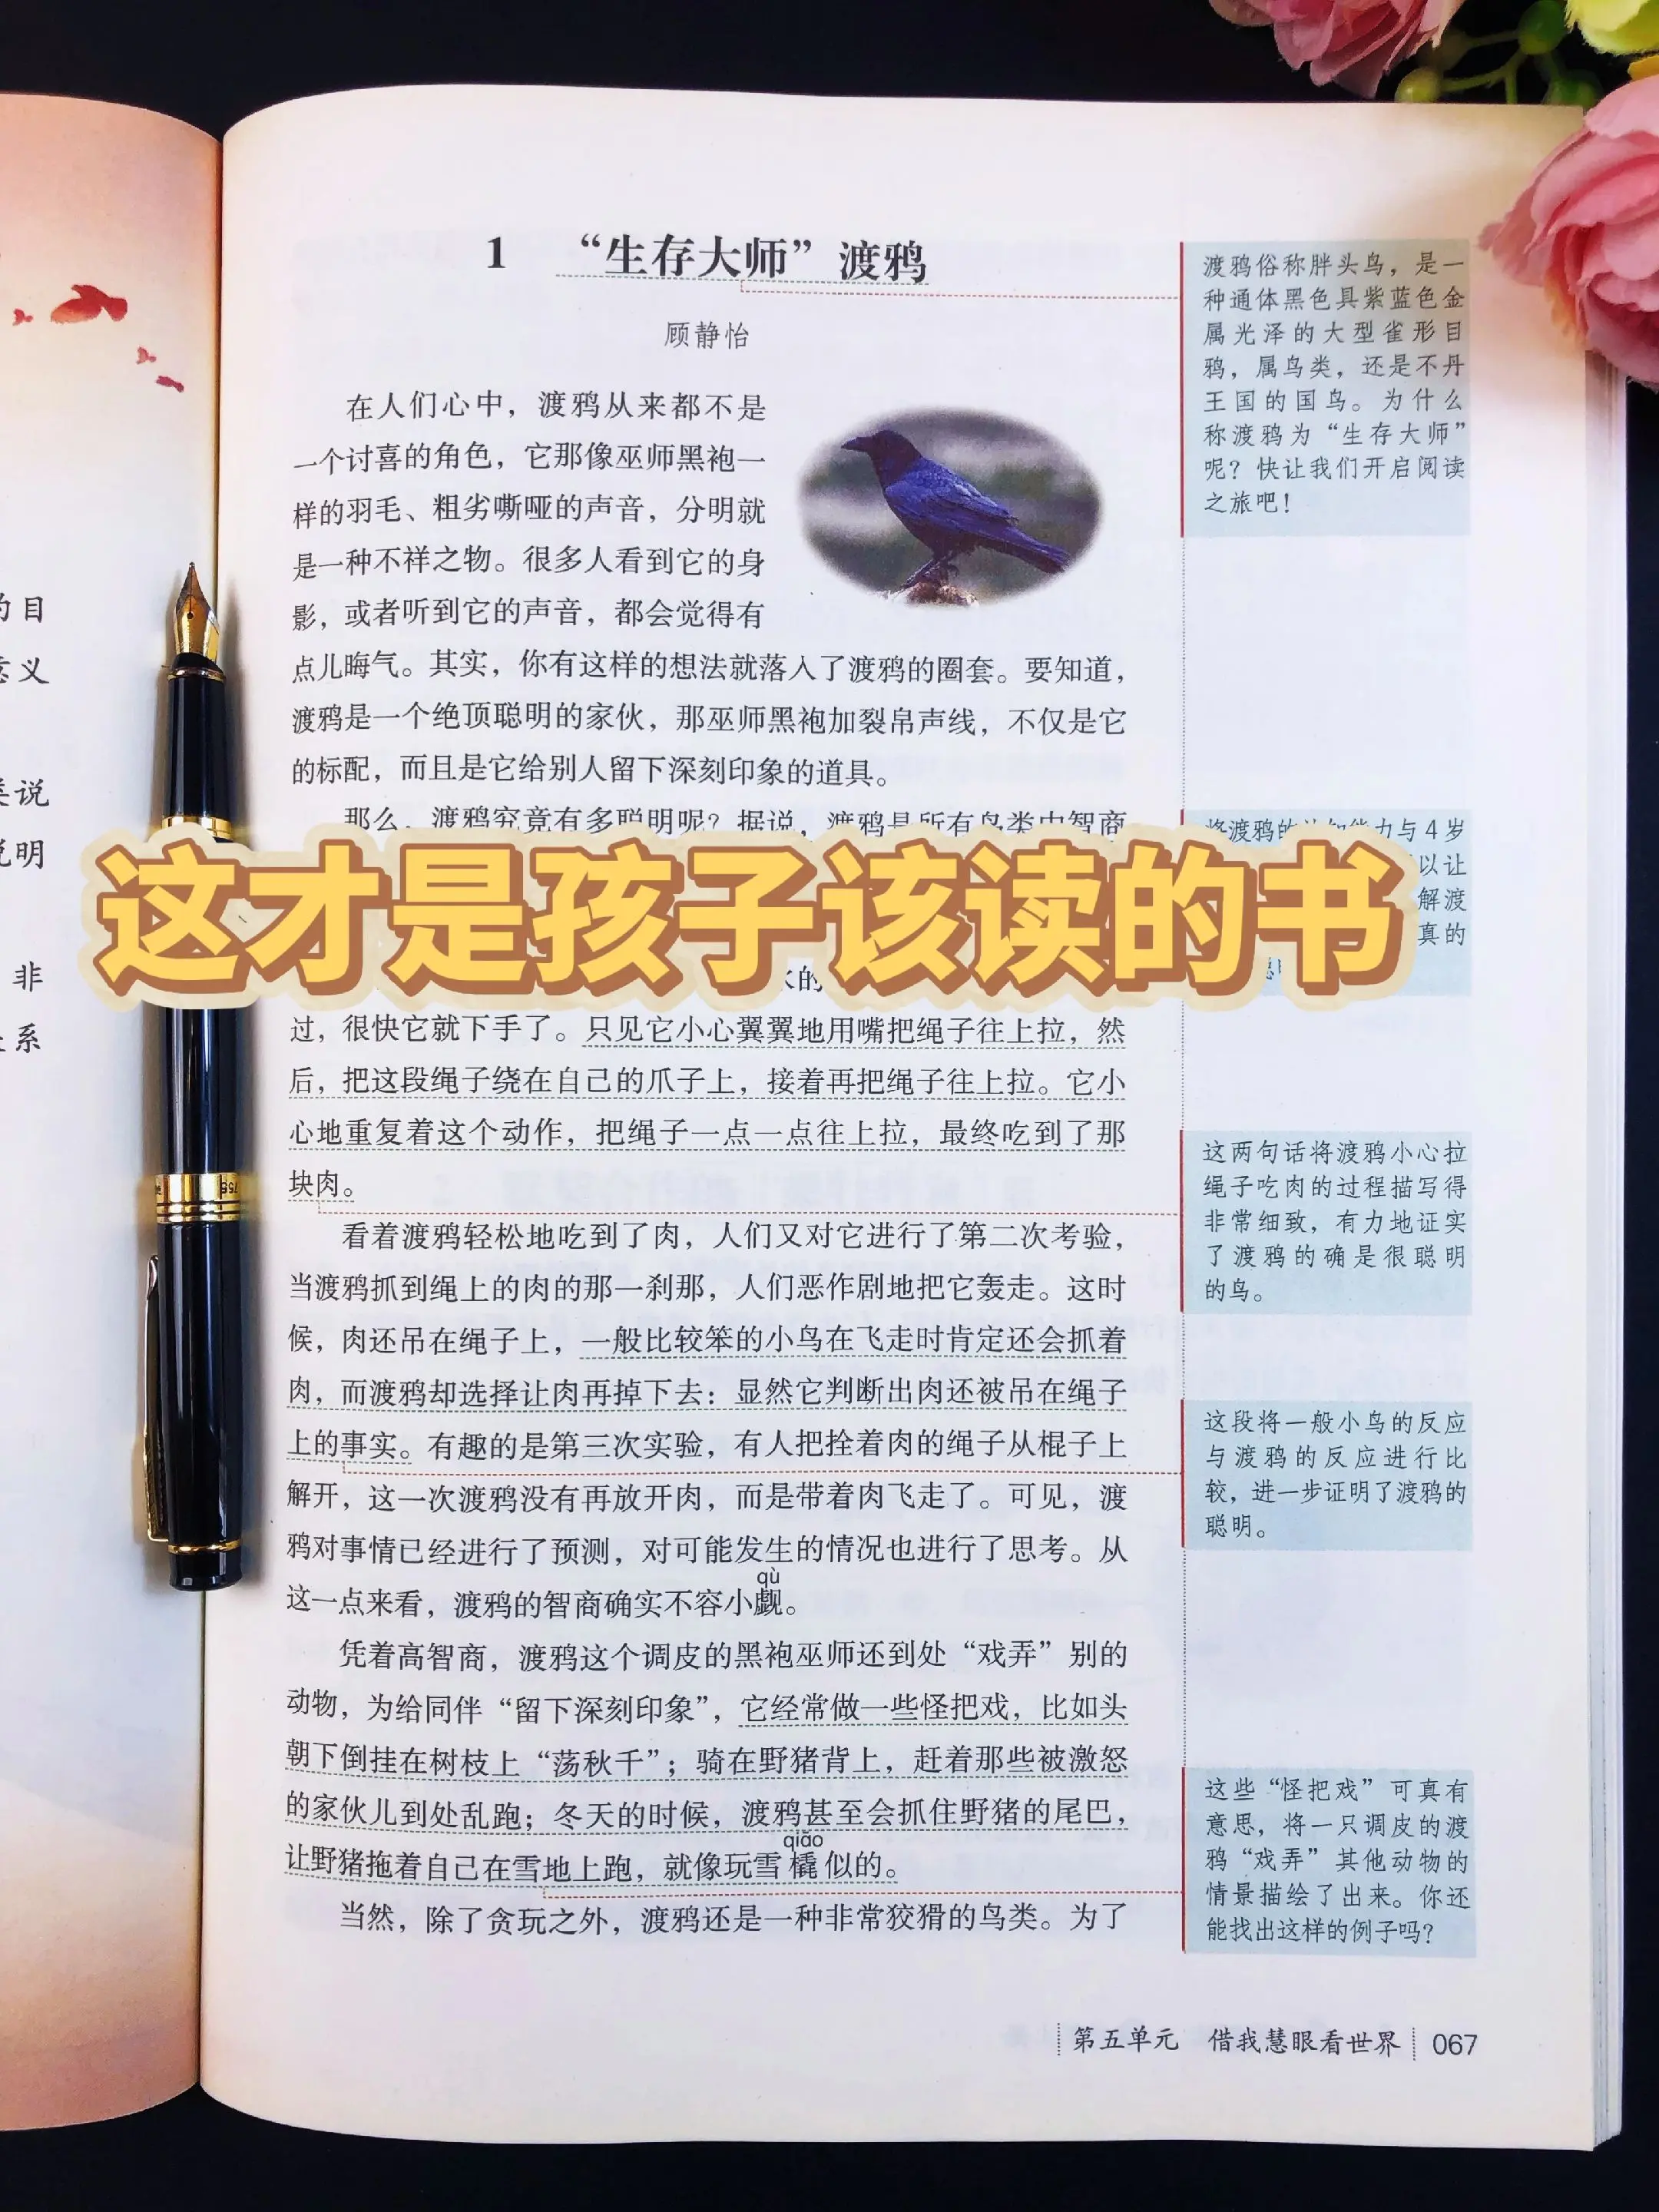 1 “生存大师”渡鸦
顾静怡
在人们心中，渡鸦从来都不是
一个讨喜的角色，它那像巫师黑袍一
样的羽毛、粗劣嘶哑的声音，分明就
是一种不祥之物。很多人看到它的身
影，或者听到它的声音，都会觉得有
点儿晦气。其实，你有这样的想法就落入了渡鸦的圈套。要知道，
渡鸦是一个绝顶聪明的家伙，那巫师黑袍加裂帛声线，不仅是它
的标配，而且是它给别人留下深刻印象的道具。
那么，渡鸦究竟有多聪明呢？据说，渡鸦是所有鸟类中智商
这才是孩子该读的书
过，很快它就下手了。只见它小心翼翼地用嘴把绳子往上拉，然
后，把这段绳子绕在自己的爪子上，接着再把绳子往上拉。它小
心地重复着这个动作，把绳子一点一点往上拉，最终吃到了那
块肉。
看着渡鸦轻松地吃到了肉，人们又对它进行了第二次考验，
当渡鸦抓到绳上的肉的那一刹那，人们恶作剧地把它轰走。这时
候，肉还吊在绳子上，一般比较笨的小鸟在飞走时肯定还会抓着
肉，而渡鸦却选择让肉再掉下去：显然它判断出肉还被吊在绳子
上的事实。有趣的是第三次实验，有人把拴着肉的绳子从棍子上
解开，这一次渡鸦没有再放开肉，而是带着肉飞走了。可见，渡
鸦对事情已经进行了预测，对可能发生的情况也进行了思考。从
qù
这一点来看，渡鸦的智商确实不容小觑。
凭着高智商，渡鸦这个调皮的黑袍巫师还到处“戏弄”别的
动物，为给同伴“留下深刻印象”，它经常做一些怪把戏，比如头
朝下倒挂在树枝上“荡秋千”；骑在野猪背上，赶着那些被激怒
的家伙儿到处乱跑；冬天的时候，渡鸦甚至会抓住野猪的尾巴，
qiāo
让野猪拖着自己在雪地上跑，就像玩雪橇似的。
当然，除了贪玩之外，渡鸦还是一种非常狡猾的鸟类。为了
渡鸦俗称胖头鸟，是一
种通体黑色具紫蓝色金
属光泽的大型雀形目
鸦，属鸟类，还是不丹
王国的国鸟。为什么
称渡鸦为“生存大师”
呢？快让我们开启阅读
之旅吧！
与4岁
以让
解渡
真的
这两句话将渡鸦小心拉
绳子吃肉的过程描写得
非常细致，有力地证实
了渡鸦的确是很聪明
的鸟。
这段将一般小鸟的反应
与渡鸦的反应进行比
较，进一步证明了渡鸦的
聪明。
这些“怪把戏”可真有
意思，将一只调皮的渡
鸦“戏弄”其他动物的
情景描绘了出来。你还
能找出这样的例子吗？
第五单元 借我慧眼看世界 067
目
义
说
明
非
系